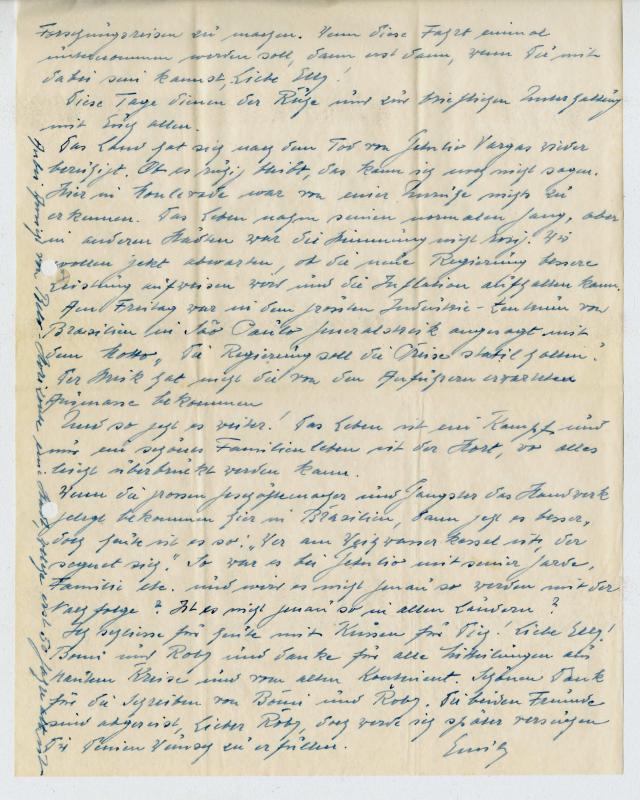 Forschungsreisen zu machen. Wenn diese Fahrt einmal
unternommen werden soll, dann erst dann, wenn Du mit
dabei sein kannst, Liebe Elly!
Diese Tage dienen der Ruhe und zur brieflichen Unterhaltung
mit Euch allen.
Das Land hat sich nach dem Tod von Getulio Vargas wieder
beruhigt. Ob es ruhig bleibt, das kann ich noch nicht sagen.
Hier in Monlevade war von einer Unruhe nichts zu
erkennen. Das Leben nahm seinen normalen Gang, aber
in anderen Städten war die Stimmung nicht rosig. Wir
wollen jetzt abwarten, ob die neue Regierung bessere
Leistung aufweisen wird und die Inflation aufhalten kann.
Am Freitag war in dem grössten Industrie-Zentrum von
Brasilien in São Paulo Generalstreik angesagt mit
dem Motto, "Die Regierung soll die Preise stabil halten".
Der Streik hat nicht die von den Anführern erwarteten
Ausmasse bekommen
Und so geht es weiter! Das Leben ist ein Kampf und
nur ein schönes Familienleben ist der Hort, wo alles
leicht überbrückt werden kann.
Wenn die grossen Geschäftemacher und Gangster das Handwerk
gelegt bekommen hier in Brasilien, dann geht es besser,
doch heute ist es so: "Wer am Weihwasserkessel ist, der
segnet sich." So war es bei Getulio mit seiner Garde,
Familie etc. und wird es nicht genau so werden mit der
Nachfolge? Ist es nicht genau so in allen Ländern?
Ich schliesse für heute mit Küssen für Dich! Liebe Elly!
Bomi und Roby und danke für alle Mitteilungen aus
Kreise und vom alten Kontinent. Schönen Dank
für die Schreiben von Bomi und Roby. Die beiden Freunde
sind abgereist, Lieber Roby, doch werde ich später versuchen
Dir Deinen Wunsch zu erfüllen.
Emil
von Belo-Horizonte eine Stadt, welche erst 50 Jahre alt ist